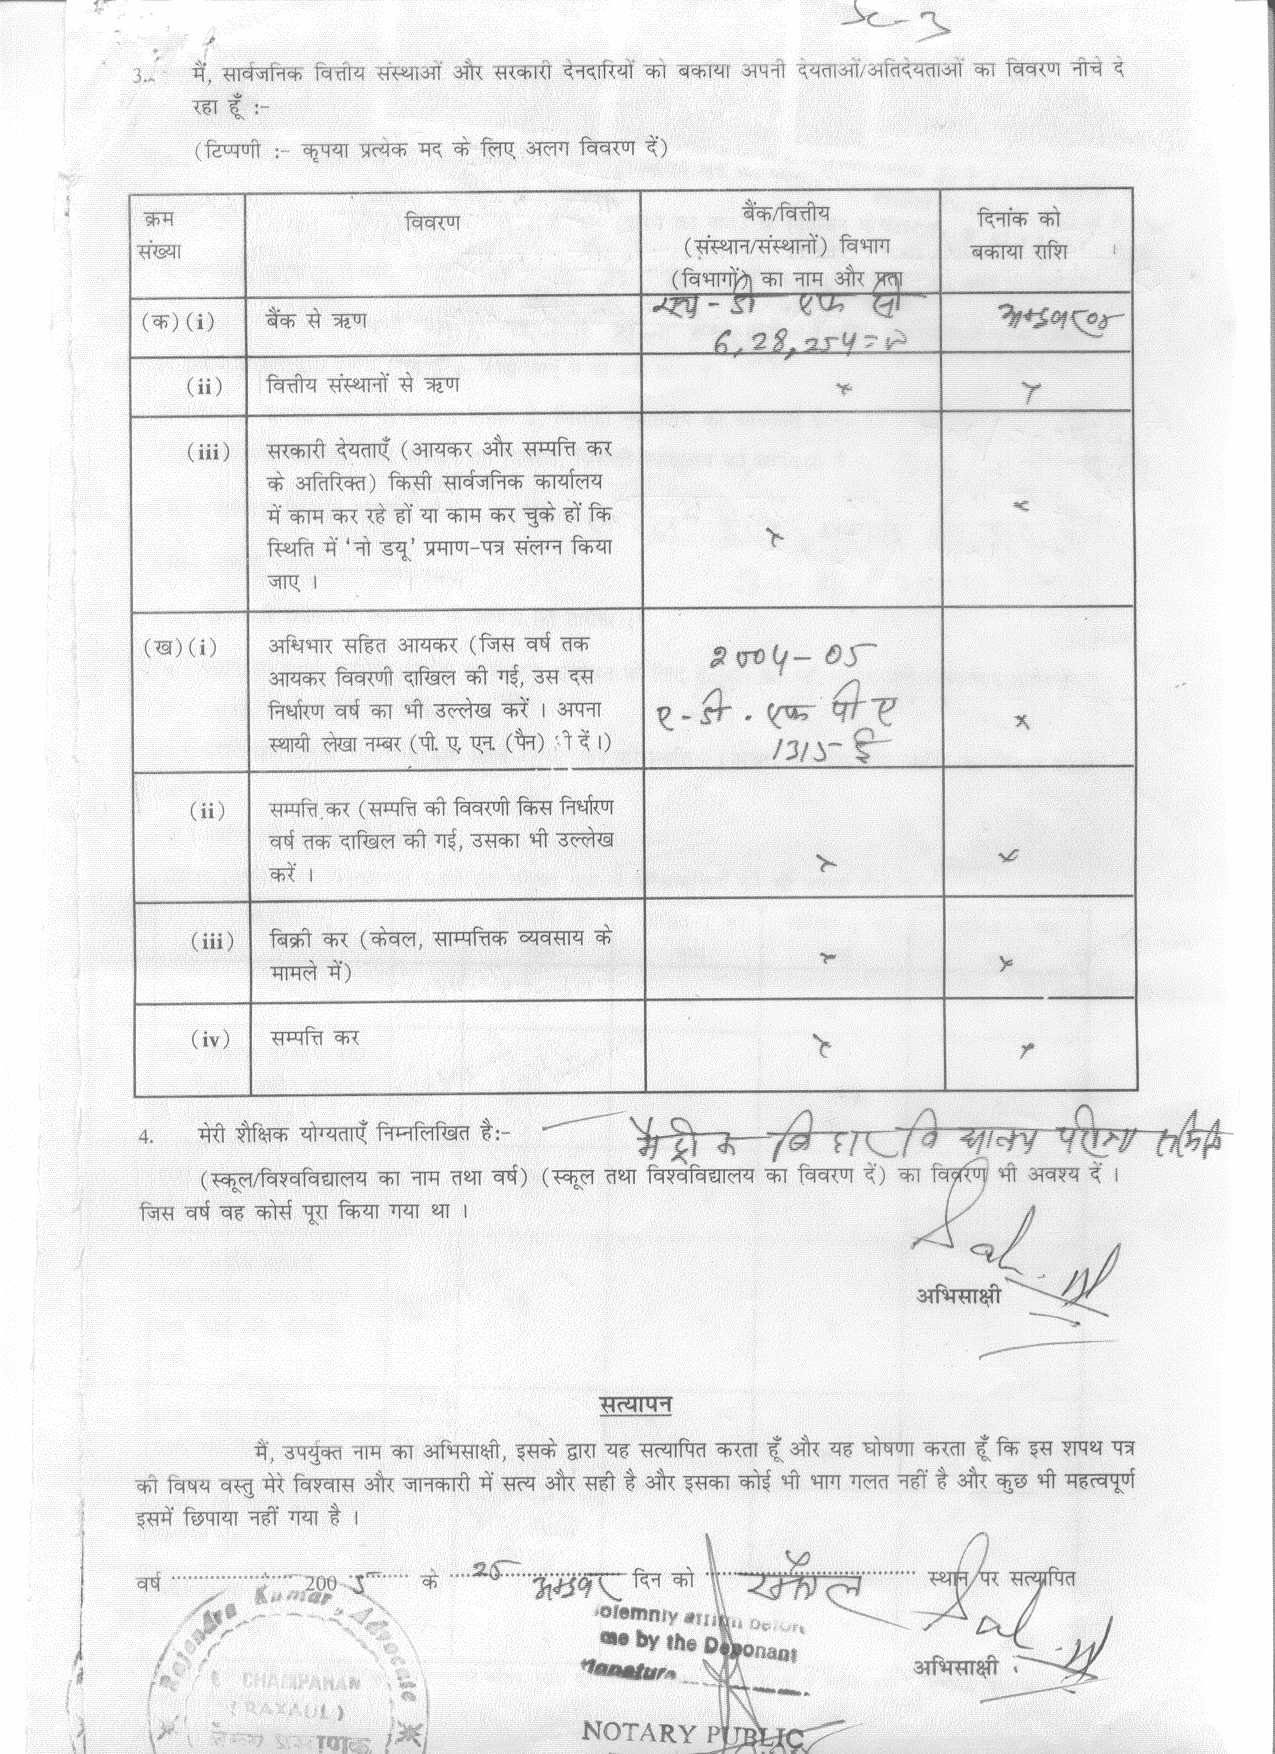 3. मैं, सार्वजनिक वित्तीय संस्थाओं और सरकारी देनदारियों को बकाया अपनी देयताओं/अतिदेयताओं का विवरण नीचे दे
रहा हूँ :-
(टिप्पणी :- कृपया प्रत्येक मद के लिए अलग विवरण दें)
क्रम संख्या
विवरण
बैंक/वित्तीय
(संस्थान/संस्थानों) विभाग
(विभागों) का नाम और पता
दिनांक को
बकाया राशि
(क) (i) बैंक से ऋण
एच - डी एफ सी
6,28,254=00
(ii) वित्तीय संस्थानों से ऋण × ×
(iii) सरकारी देयताएँ (आयकर और सम्पत्ति कर
के अतिरिक्त) किसी सार्वजनिक कार्यालय
में काम कर रहे हों या काम कर चुके हों कि
स्थिति में ‘नो डयू’ प्रमाण-पत्र संलग्न किया
जाए ।
× ×
(ख) (i) अधिभार सहित आयकर (जिस वर्ष तक
आयकर विवरणी दाखिल की गई, उस दस
निर्धारण वर्ष का भी उल्लेख करें । अपना
स्थायी लेखा नम्बर (पी. ए. एन. (पैन) भी दें।)
2004-05
ए - डी . एफ पी ए
1315 ई
×
(ii) सम्पत्ति कर (सम्पत्ति की विवरणी किस निर्धारण
वर्ष तक दाखिल की गई, उसका भी उल्लेख
करें ।
× ×
(iii) बिक्री कर (केवल, साम्पत्तिक व्यवसाय के
मामले में)
× ×
(iv) सम्पत्ति कर × ×
4. मेरी शैक्षिक योग्यताएँ निम्नलिखित है:- मैट्रीक बिहार विद्यालय परीक्षा समिति
(स्कूल/विश्वविद्यालय का नाम तथा वर्ष) (स्कूल तथा विश्वविद्यालय का विवरण दें) का विवरण भी अवश्य दें ।
जिस वर्ष वह कोर्स पूरा किया गया था ।
अभिसाक्षी
सत्यापन
मैं, उपर्युक्त नाम का अभिसाक्षी, इसके द्वारा यह सत्यापित करता हूँ और यह घोषणा करता हूँ कि इस शपथ पत्र
की विषय वस्तु मेरे विश्वास और जानकारी में सत्य और सही है और इसका कोई भी भाग गलत नहीं है और कुछ भी महत्वपूर्ण
इसमें छिपाया नहीं गया है ।
वर्ष 2005 के 25 अक्टूबर दिन को रक्सौल स्थान पर सत्यापित
अभिसाक्षी
Solemnly affirm before
me by the Deponant
Signature
NOTARY PUBLIC
Rajendra Kumar, Advocate
E CHAMPARAN
(RAXAUL)